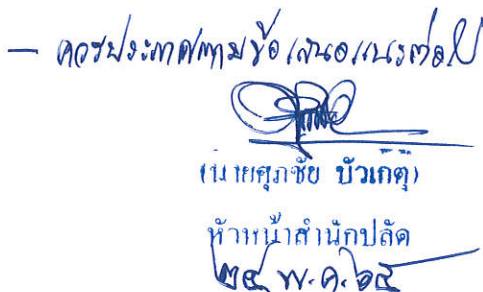 - ควรประกาศตามข้อเสนอแนะต่อไป
(นายศุภชัย บัวเกตุ)
หัวหน้าสำนักปลัด
๒๕ พ.ค. ๖๕